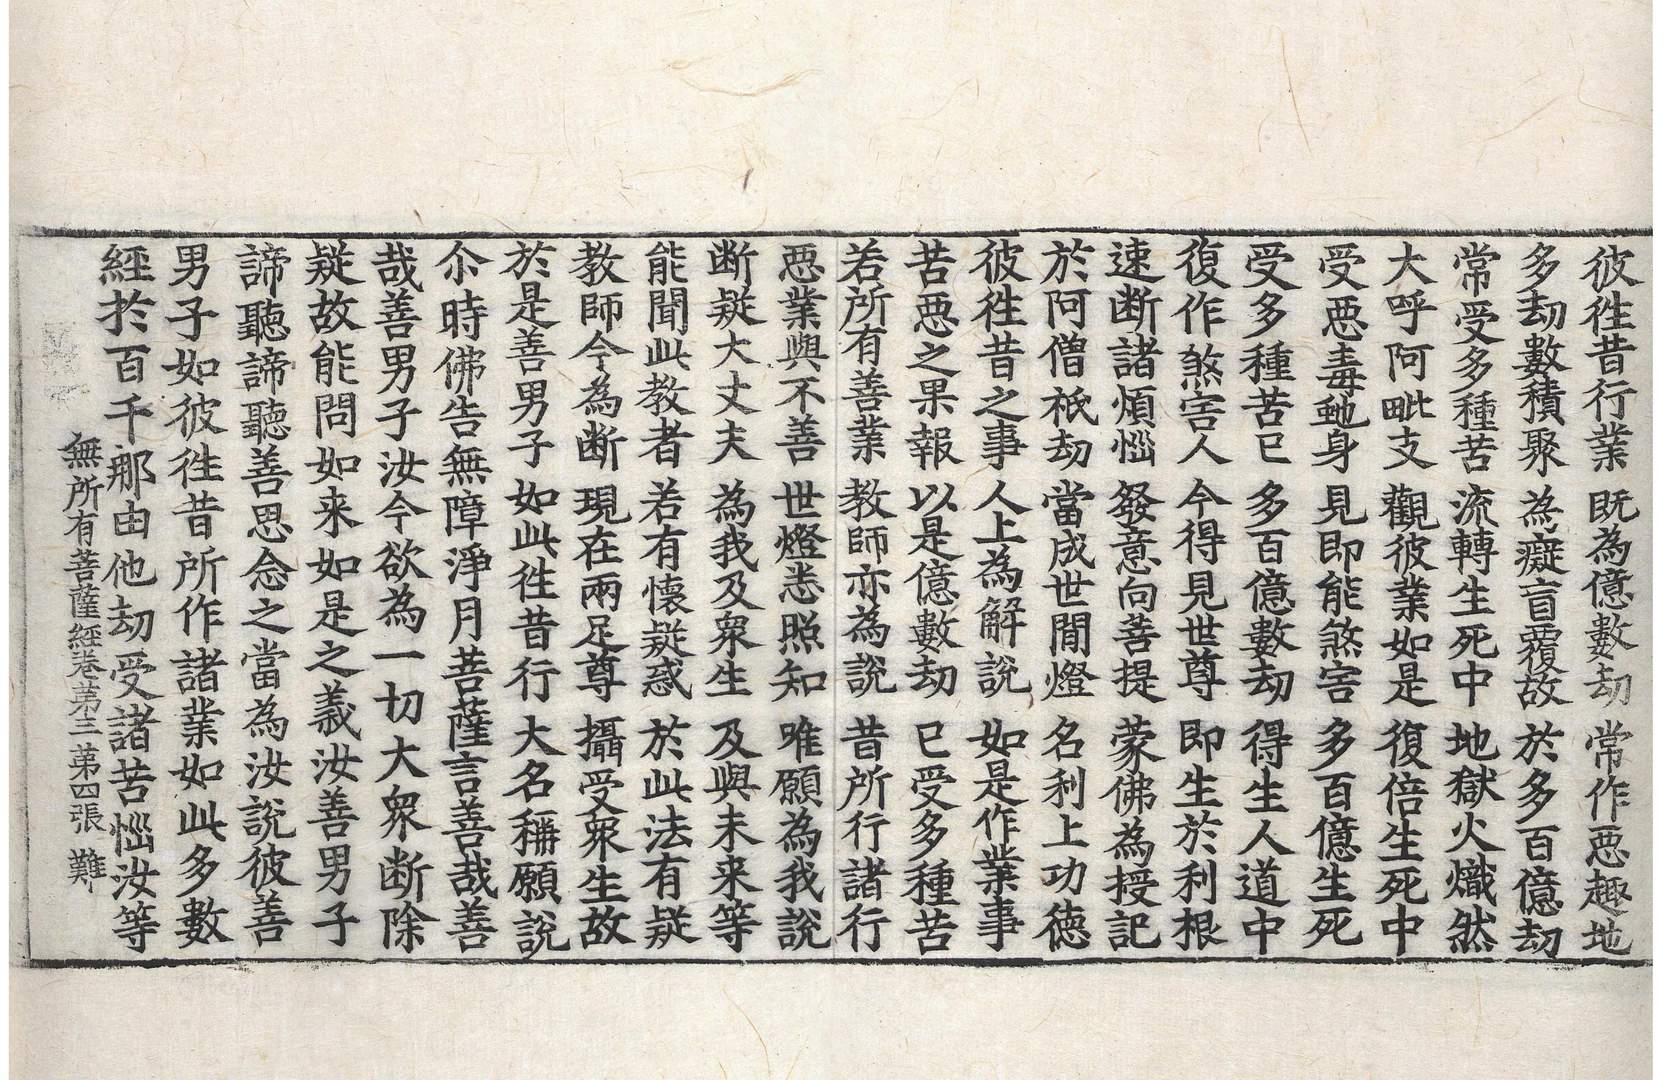 彼徃昔行業 既為億數劫 常作惡趣地
多劫數積聚 為癡盲覆故 於多百億劫
常受多種苦 流轉生死中 地獄火熾然
大呼阿毗支 觀彼業如是 復倍生死中
受惡毒虵身 見即能煞害 多百億生死
受多種苦已 多百億數劫 得生人道中
復作煞害人 今得見世尊 即生於利根
速断諸煩惱 發意向菩提 蒙佛為授記
於阿僧祇劫 當成世間燈 名利上功德
彼徃昔之事 人上為解說 如是作業事
苦惡之果報 以是億數劫 已受多種苦
若所有善業 教師亦為說 昔所行諸行
惡業與不善 世燈悉照知 唯願為我說
断疑大丈夫 為我及衆生 及與未来等
能聞此教者 若有懷疑惑 於此法有疑
教師今為断 現在兩足尊 攝受衆生故
於是善男子 如此徃昔行 大名稱願說
尒時佛告無障淨月菩薩言善哉善
哉善男子汝今欲為一切大衆断除
疑故能問如来如是之義汝善男子
諦聽諦聽善思念之當為汝說彼善
男子如彼徃昔所作諸業如此多數
經於百千那由他劫受諸苦惱汝等
無所有菩薩經卷第三 第四張 難